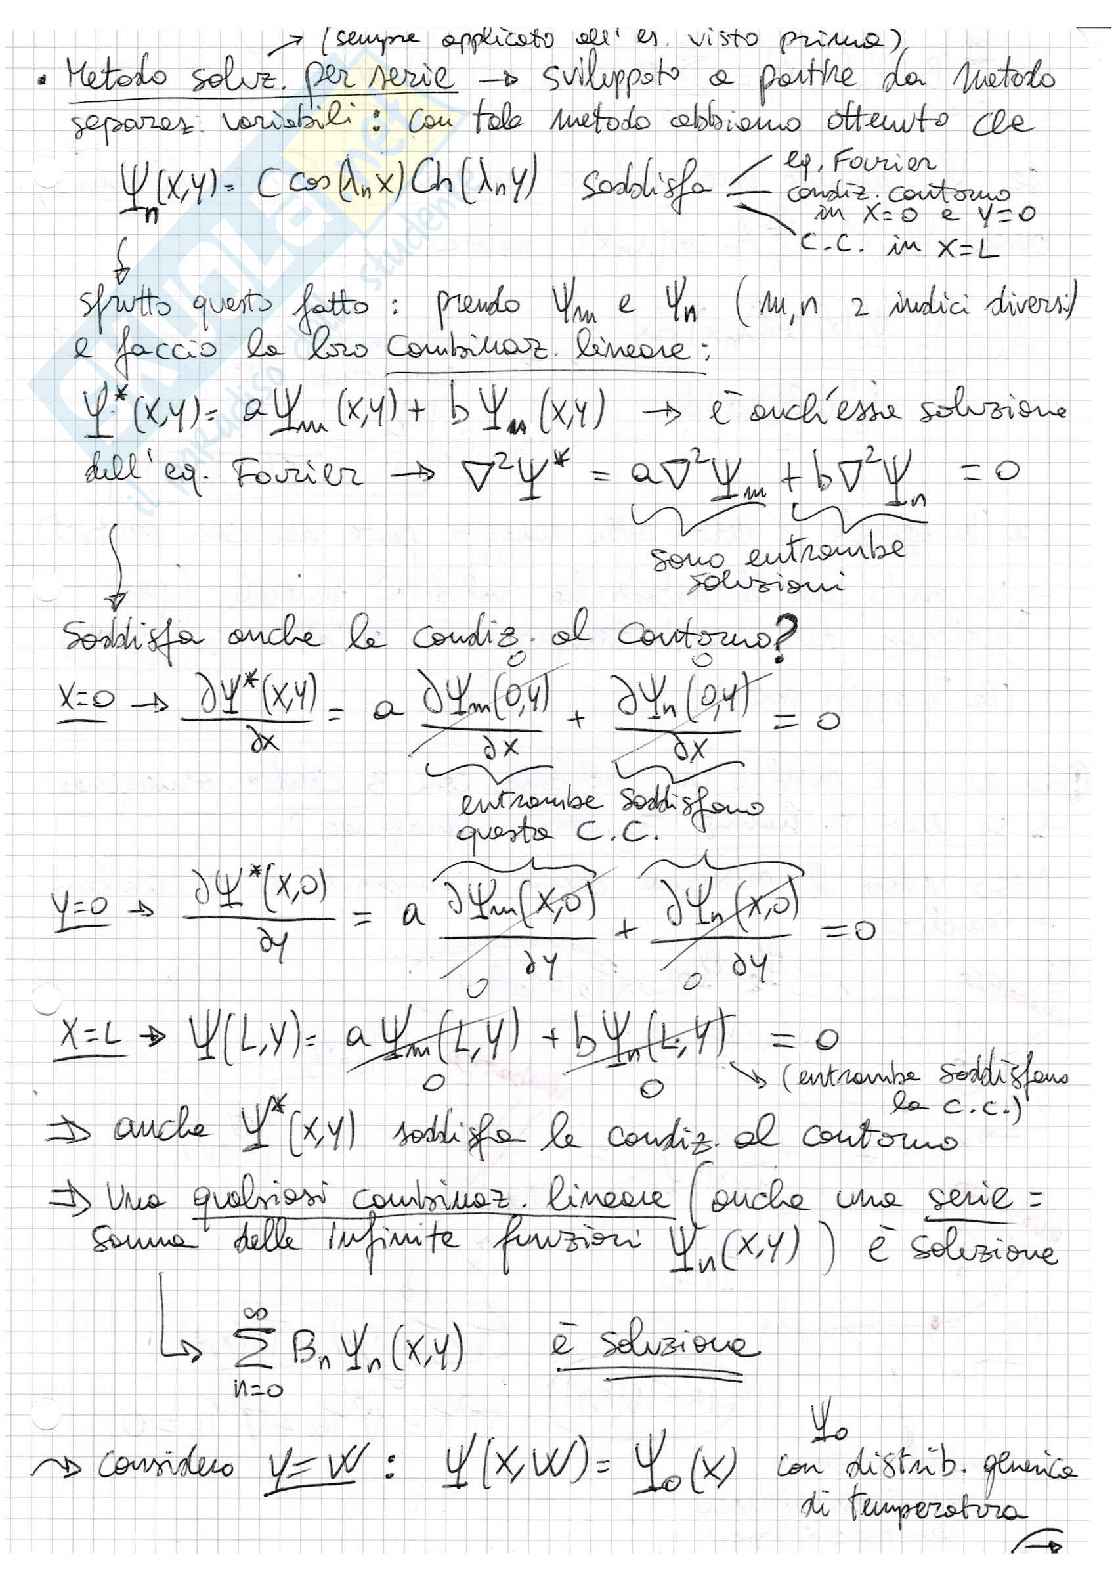 → (sempre applicato all' es. visto prima)
• Metodo soluz. per serie → sviluppato a partire da metodo
separaz. variabili: con tale metodo abbiamo ottenuto che
Ψn(x,y) = C cos(λn x) Ch(λn y) soddisfa
eq. Fourier
condiz. contorno
in x=0 e y=0
C.C. in x=L
sfrutto questo fatto: prendo Ψm e Ψn (m,n 2 indici diversi)
e faccio la loro combinaz. lineare:
Ψ*(x,y) = aΨm(x,y) + bΨn(x,y) → è anch'essa soluzione
dell'eq. Fourier → ∇²Ψ* = a∇²Ψm + b∇²Ψn = 0
sono entrambe
soluzioni
Soddisfa anche le condiz. al contorno?
0 0
x=0 → ∂Ψ*(x,y)/∂x = a ∂Ψm(0,y)/∂x + ∂Ψn(0,y)/∂x = 0
entrambe soddisfano
questa C.C.
y=0 → ∂Ψ*(x,0)/∂y = a ∂Ψm(x,0)/∂y + ∂Ψn(x,0)/∂y = 0
0 0
x=L → Ψ(L,y) = aΨm(L,y) + bΨn(L,y) = 0
0 0 → (entrambe soddisfano
la C.C.)
⇒ anche Ψ*(x,y) soddisfa le condiz. al contorno
⇒ Una qualsiasi combinaz. lineare (anche una serie =
somma delle infinite funzioni Ψn(x,y)) è soluzione
∞
↳ Σ Bn Ψn(x,y) è soluzione
n=0
Ψ0
→ considero y=W: Ψ(x,W) = Ψ0(x) con distrib. generica
di temperatura
→